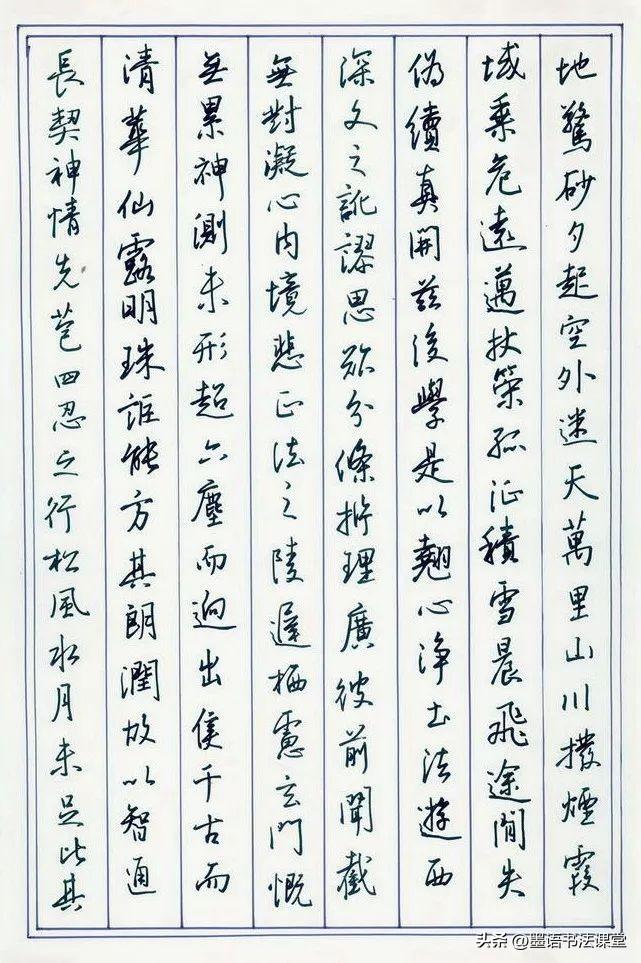 地驚砂夕起空外迷天萬里山川撥煙霞
域乘危遠邁杖策孤征積雪晨飛途閒失
偽續真開茲後學是以翹心淨土法遊西
深文之訛謬思欲分條析理廣彼前聞截
無對凝心內境悲正法之陵遲栖慮玄門慨
無累神測未形超六塵而迥出隻千古而
清華仙露明珠詎能方其朗潤故以智通
長契神情先苞四忍之行松風水月未足比其
头条 @墨语书法课堂